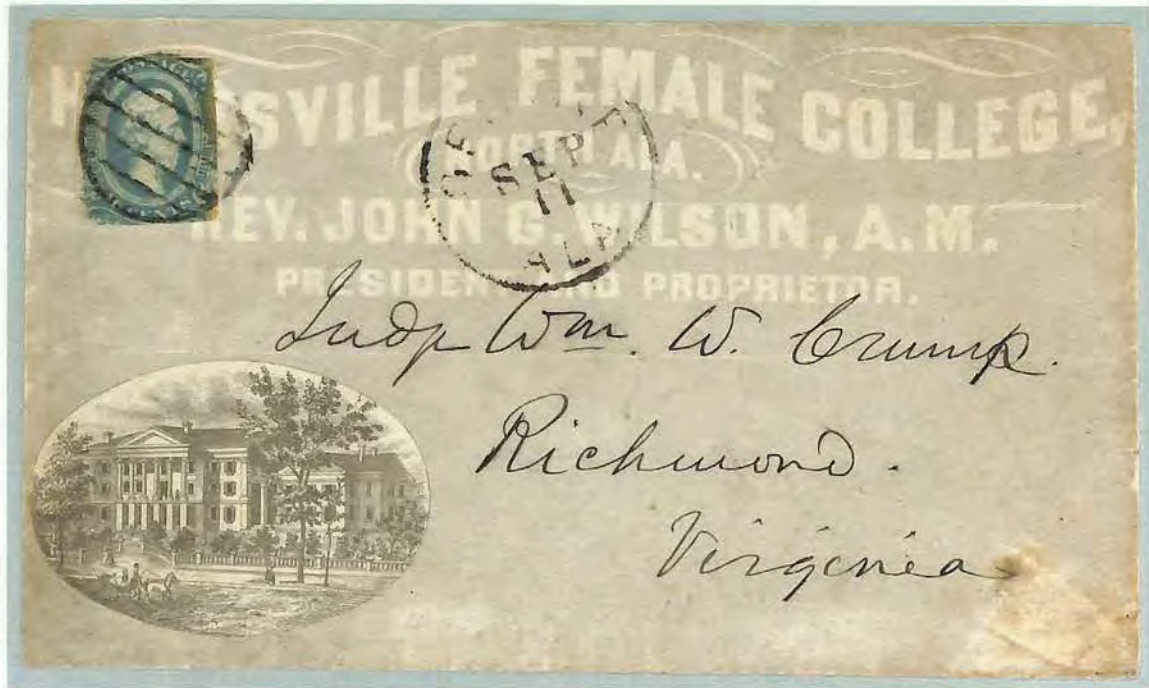 SVILLE FEMALE COLLEGE,
NORTH ALA.
REV. JOHN G. WILSON, A. M.
PRESIDENT AND PROPRIETOR.
SEP
11
ALA
Judge Wm. W. Crump.
Richmond.
Virginia